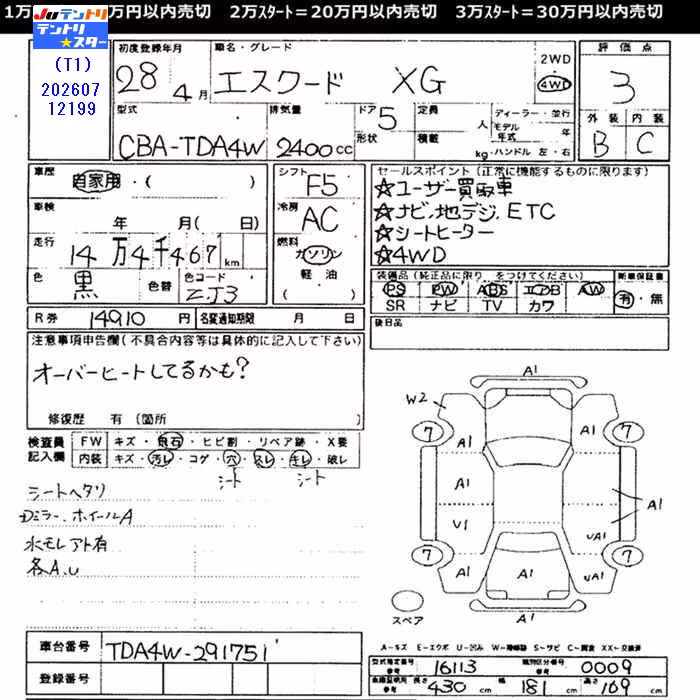 1万 万円以内売切 2万スタート＝20万円以内売切 3万スタート＝30万円以内売切
Juテントリ
テントリ★スター
(T1)
202607
12199
初度登録年月
28年4月
車名・グレード
エスクード XG
2WD
4WD
評価点
3
外装 内装
B C
型式
CBA-TDA4W
排気量
2400cc
ドア 5
形状
定員 人
積載 kg
ディーラー・並行
モデル年式 年
ハンドル 左・右
車歴
自家用・( )
車検
年 月(日)
走行
14万4千467km
色
黒
色替
色コード
ZJ3
シフト
F5
冷房
AC
燃料
ガソリン
軽油
( )
セールスポイント(正常に機能するものに限ります)
☆ユーザー買取車
☆ナビ,地デジ,ETC
☆シートヒーター
☆4WD
装備品(純正品に限り をつけてください)
PS PW ABS エアB AW
SR ナビ TV カワ
新車保証書
有・無
後日品
R券 14910円
名変通知期限 月 日
注意事項申告欄(不具合内容等は具体的に記入して下さい)
オーバーヒートしてるかも?
修復歴 有(箇所 )
検査員記入欄
FW キズ・飛石・ヒビ割・リペア跡・X要
内装 キズ・汚レ・コゲ・穴・スレ・キレ・破レ
シート シート
シートヘタリ
Dミラー、ホイールA
水モレアト有
各A,U
A1
W2
7 A1 A1 7
A1 A1
V1 UA1
7 A1 A1 UA1 7
A1
スペア
A-キズ E-エクボ U-凹み W-補修跡 S-サビ C-腐食 XX-交換済
車台番号 TDA4W-291751
登録番号
型式指定番号 参考 16113
類別区分番号 参考 0009
車両証明寸 参考 長さ 430cm 幅 181cm 高さ 169cm